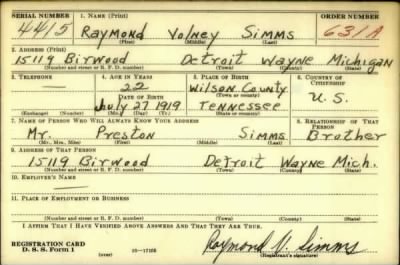 SERIAL NUMBER 1. NAME (Print) ORDER NUMBER
4415 Raymond Volney Simms 631A
(First) (Middle) (Last)
2. ADDRESS (Print)
15119 Birwood Detroit Wayne Michigan
(Number and street or R. F. D. number) (Town) (County) (State)
3. TELEPHONE 4. AGE IN YEARS 5. PLACE OF BIRTH 6. COUNTRY OF CITIZENSHIP
— 22 Wilson County
DATE OF BIRTH (Town or county) U.S.
July 27 1919 Tennessee
(Exchange) (Number) (Mo.) (Day) (Yr.) (State or country)
7. NAME OF PERSON WHO WILL ALWAYS KNOW YOUR ADDRESS 8. RELATIONSHIP OF THAT PERSON
Mr. Preston Simms Brother
(Mr., Mrs., Miss) (First) (Middle) (Last)
9. ADDRESS OF THAT PERSON
15119 Birwood Detroit Wayne Mich.
(Number and street or R. F. D. number) (Town) (County) (State)
10. EMPLOYER'S NAME
—
11. PLACE OF EMPLOYMENT OR BUSINESS
—
(Number and street or R. F. D. number) (Town) (County) (State)
I AFFIRM THAT I HAVE VERIFIED ABOVE ANSWERS AND THAT THEY ARE TRUE.
REGISTRATION CARD
D. S. S. Form 1 (over) Raymond V. Simms
(Registrant's signature)